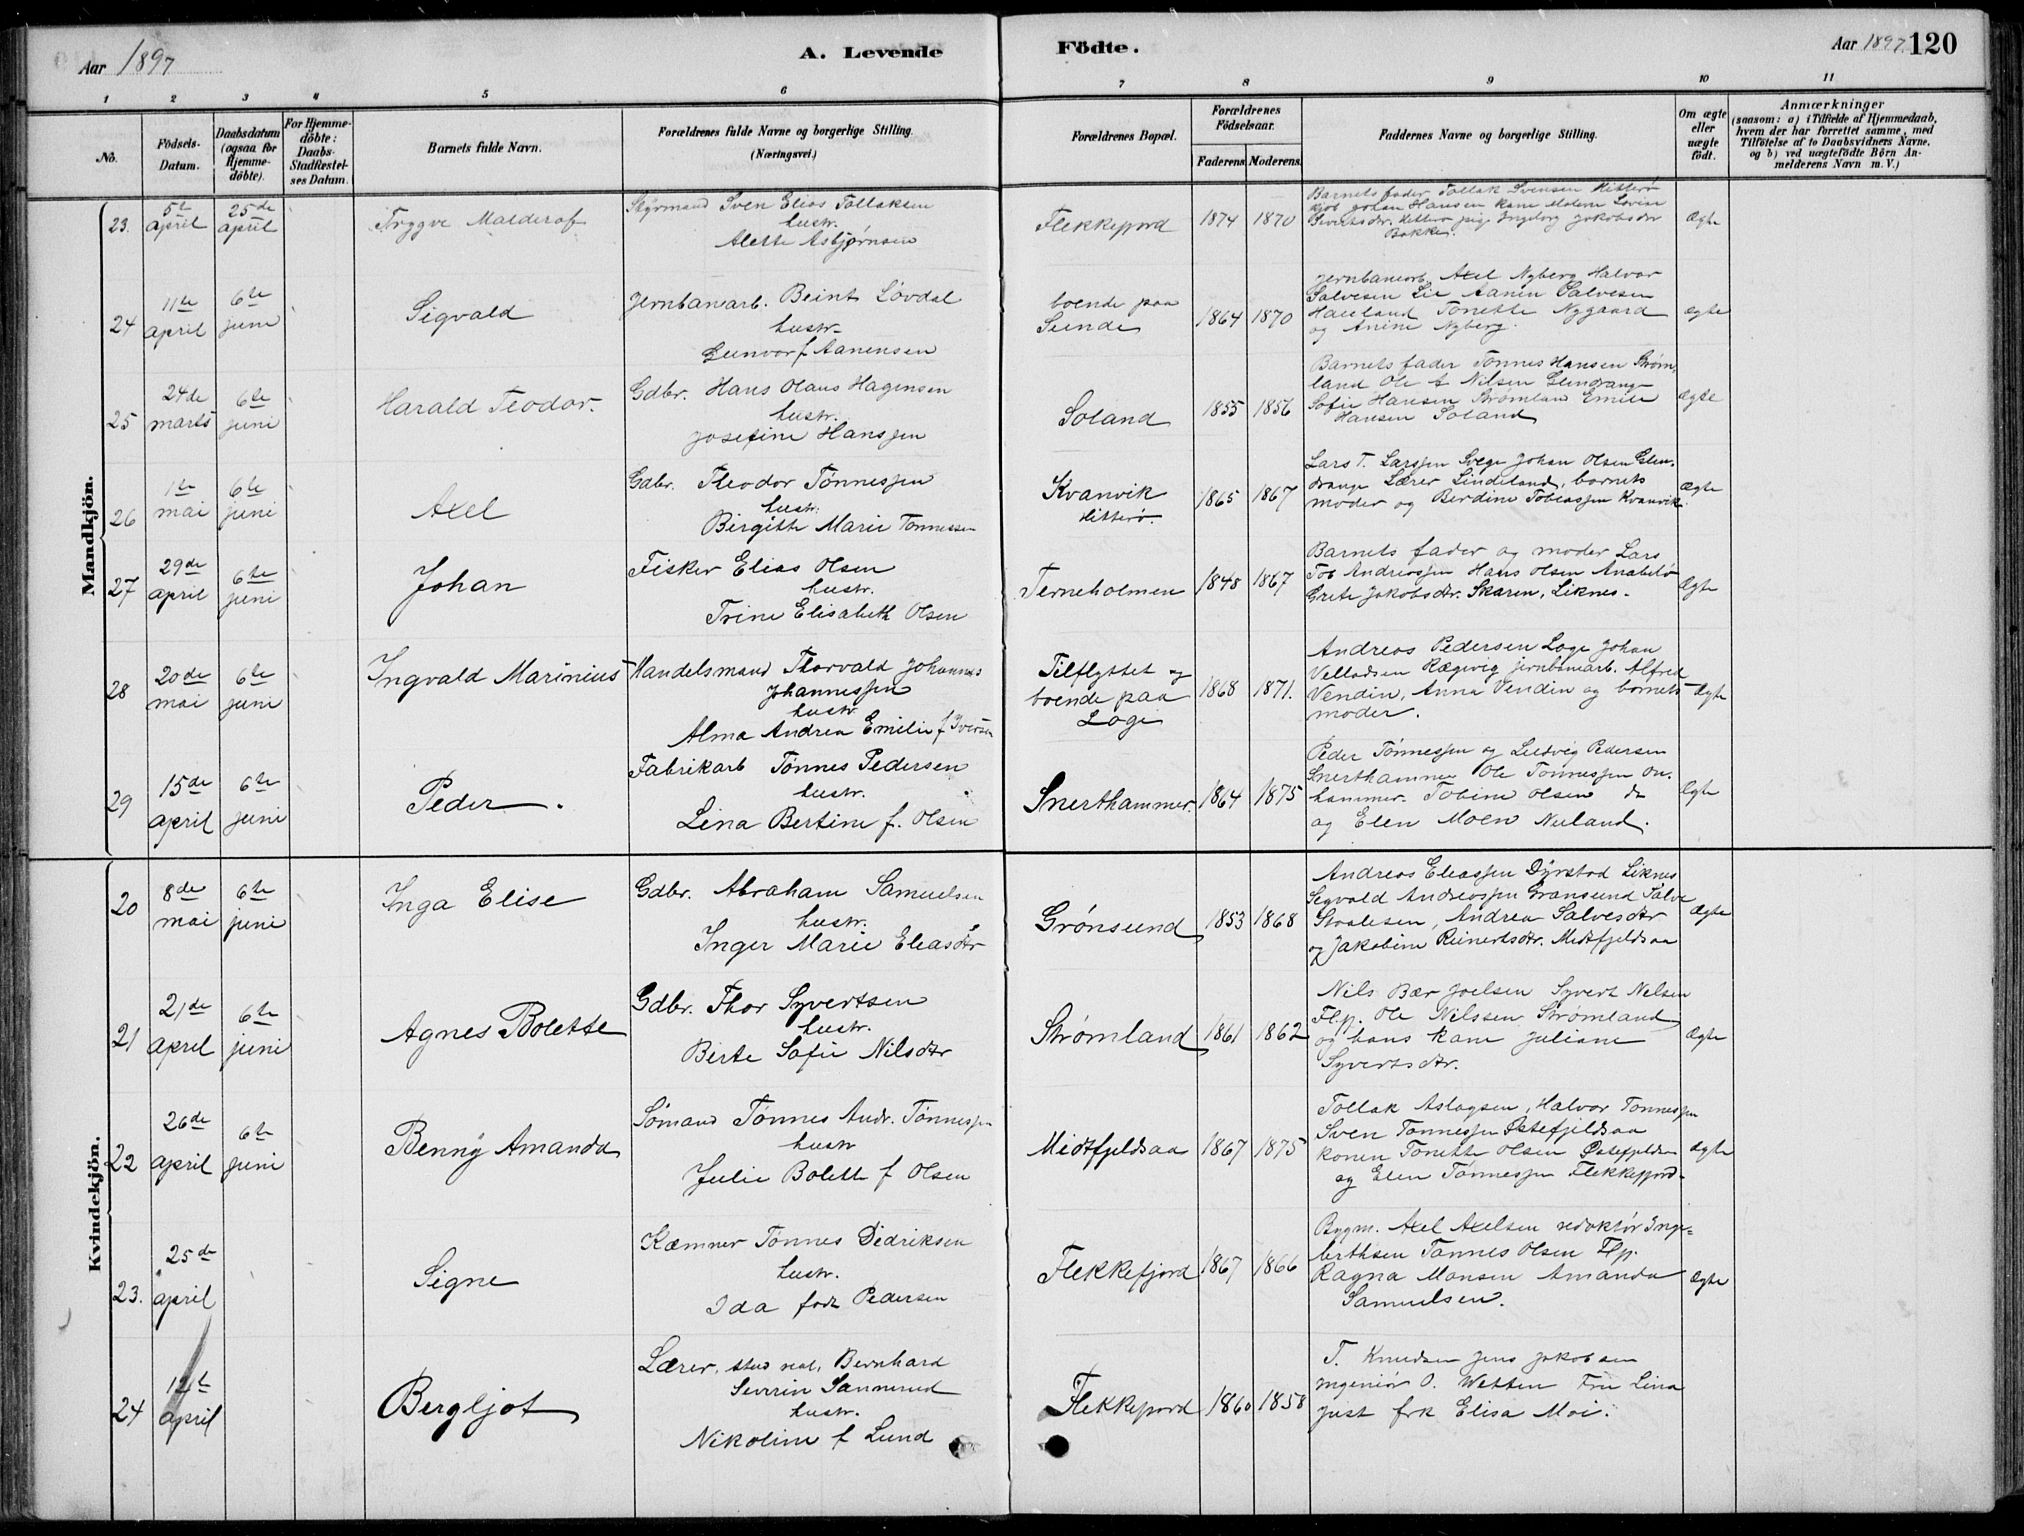 Aar 1897
A. Levende
Födte.
Aar 1897. 120
1 2 3 4 5 6 7 8 9 10 11
No.
Födsels-
Datum.
Daabsdatum
(ogsaa for
Hjemme-
döbte).
For Hjemme-
döbte:
Daabs-
Stadfestel-
ses Datum.
Barnets fulde Navn.
Forældrenes fulde Navne og borgerlige Stilling.
(Næringsvei.)
Forældrenes Bopæl.
Forældrenes
Födselsaar.
Faderens. Moderens.
Faddernes Navne og borgerlige Stilling.
Om ægte
eller
uægte
født.
Anmærkninger
(saasom: a) i Tilfælde af Hjemmedaab,
hvem der har forrettet samme, med
Tilföielse af to Daabsvidners Navne,
og b) ved uægtefödte Börn An-
melderens Navn m. V.)
Mandkjön.
23. 5te april
25de april
Trygve Malderof
Styrmand Sven Elias Tollaksen
hustr.
Alette Asbjørnsen
Flekkefjord
1874 1870
Barnets fader Tollak Svensen Hitterø
Johan Hansen kone Malene Lovise
Sivertsdtr. Hitterø pige Ingeborg Jakobsdtr
Bakke.
Ægte
24 11te april
6te juni
Sigvald
Jernbanearb. Beint Løvdal
hustr.
Gunvor f Aanensen
boende paa
Sunde
1864 1870
Jernbanearb. Axel Nyberg Halvor
Salvesen Lie Aanen Salvesen
Haueland Tonette Nygaard
og Anine Nyberg.
Ægte
25 24de marts
6te juni
Harald Teodor.
Gdbr. Hans Olaus Hagensen
hustr.
Josefine Hanssen
Soland
1855 1856
Barnets fader Tønnes Hansen Strøm-
land Ole A Nilsen Glendrange
Sofie Hansen Strømland Emilie
Hansen Soland
Ægte
26 1te mai
6te juni
Axel
Gdbr. Theodor Tønnessen
hustr.
Birgitte Marie Tønnessen
Kvanvik
Hitterø.
1865 1867
Lars T. Larssen Svege Johan Olsen Glen-
drange Lærer Lindeland, barnets
moder og Berdine Tobiassen Kvanvik.
Ægte
27 29de april
6te juni
Johan
Fisker Elias Olsen
hustr.
Trine Elisabeth Olsen
Terneholmen
1848 1867
Barnets fader og moder Lars
Tob Andreassen Hans Olsen Anabelø
Grete Jakobsdtr. Skaren, Liknes.
Ægte
28 20de mai
6te juni
Ingvald Marinius
Handelsmand Thorvald Johannes
Johannessen
hustr
Alma Andrea Emilie f Iversen
Tilflyttet og
boende paa
Loge
1868 1871.
Andreas Pedersen Loge Johan
Velladsen Rægevig jernbanearb. Alfred
Vendin, Anna Vendin og barnets
moder.
Ægte
29 15de april
6te juni
Peder.
Fabrikarb Tønnes Pedersen
hustr.
Lina Bertine f. Olsen
Snerthammer.
1864 1875
Peder Tønnessen og Ludvig Pedersen
Snerthammer Ole Tønnessen On-
hammer. Tobine Olsen do
og Elen Moen Nuland.
Ægte
Kvindekjön.
20 8de mai
6te juni
Inga Elise
Gdbr. Abraham Samuelsen
hustr.
Inger Marie Eliasdtr
Grønsund
1853 1868
Andreas Eliassen Dyrstad Liknes
Sigvald Andreassen Grønsund Salve
Staalesen, Andrea Salvesdtr
og Jakobine Reinertsdtr. Midtfjeldsaa
Ægte
21 21de april
6te juni
Agnes Bolette
Gdbr. Thor Syvertsen
hustr.
Berte Sofie Nilsdtr
Strømland
1861 1862
Nils Bær Joelsen Syvert Nilsen
Flfj. Ole Nilssen Strømland
og hans kone Juliane
Syvertsdtr.
Ægte
22 26de april
6te juni
Benny Amanda
Sømand Tønnes Andr. Tønnessen
hustr
Julie Bolette f Olsen
Midtfjeldsaa
1867 1875
Tollak Aslagsen, Halvor Tønnessen
Sven Tønnessen Østefjeldsaa
konen Tonette Olsen Østefjeldsaa
og Elen Tønnessen Flekkefjord.
Ægte
23. 25de april
Signe
Kæmner Tønnes Didriksen
hustr.
Ida født Pedersen
Flekkefjord
1867 1866
Bygm. Axel Axelsen redaktør Inge-
brethsen Tønnes Olsen Flfj.
Ragna Monsen Amanda
Samuelsen.
Ægte
24 12te april
Bergljot
Lærer, stud real, Bernhard
Severin Sannerud
hustr.
Nikoline f Lund
Flekkefjord
1860 1858
T. Knudsen Jens Jakobsen
Ingeniør O. Wetten Fru Lina
Just frk Elisa Moi.